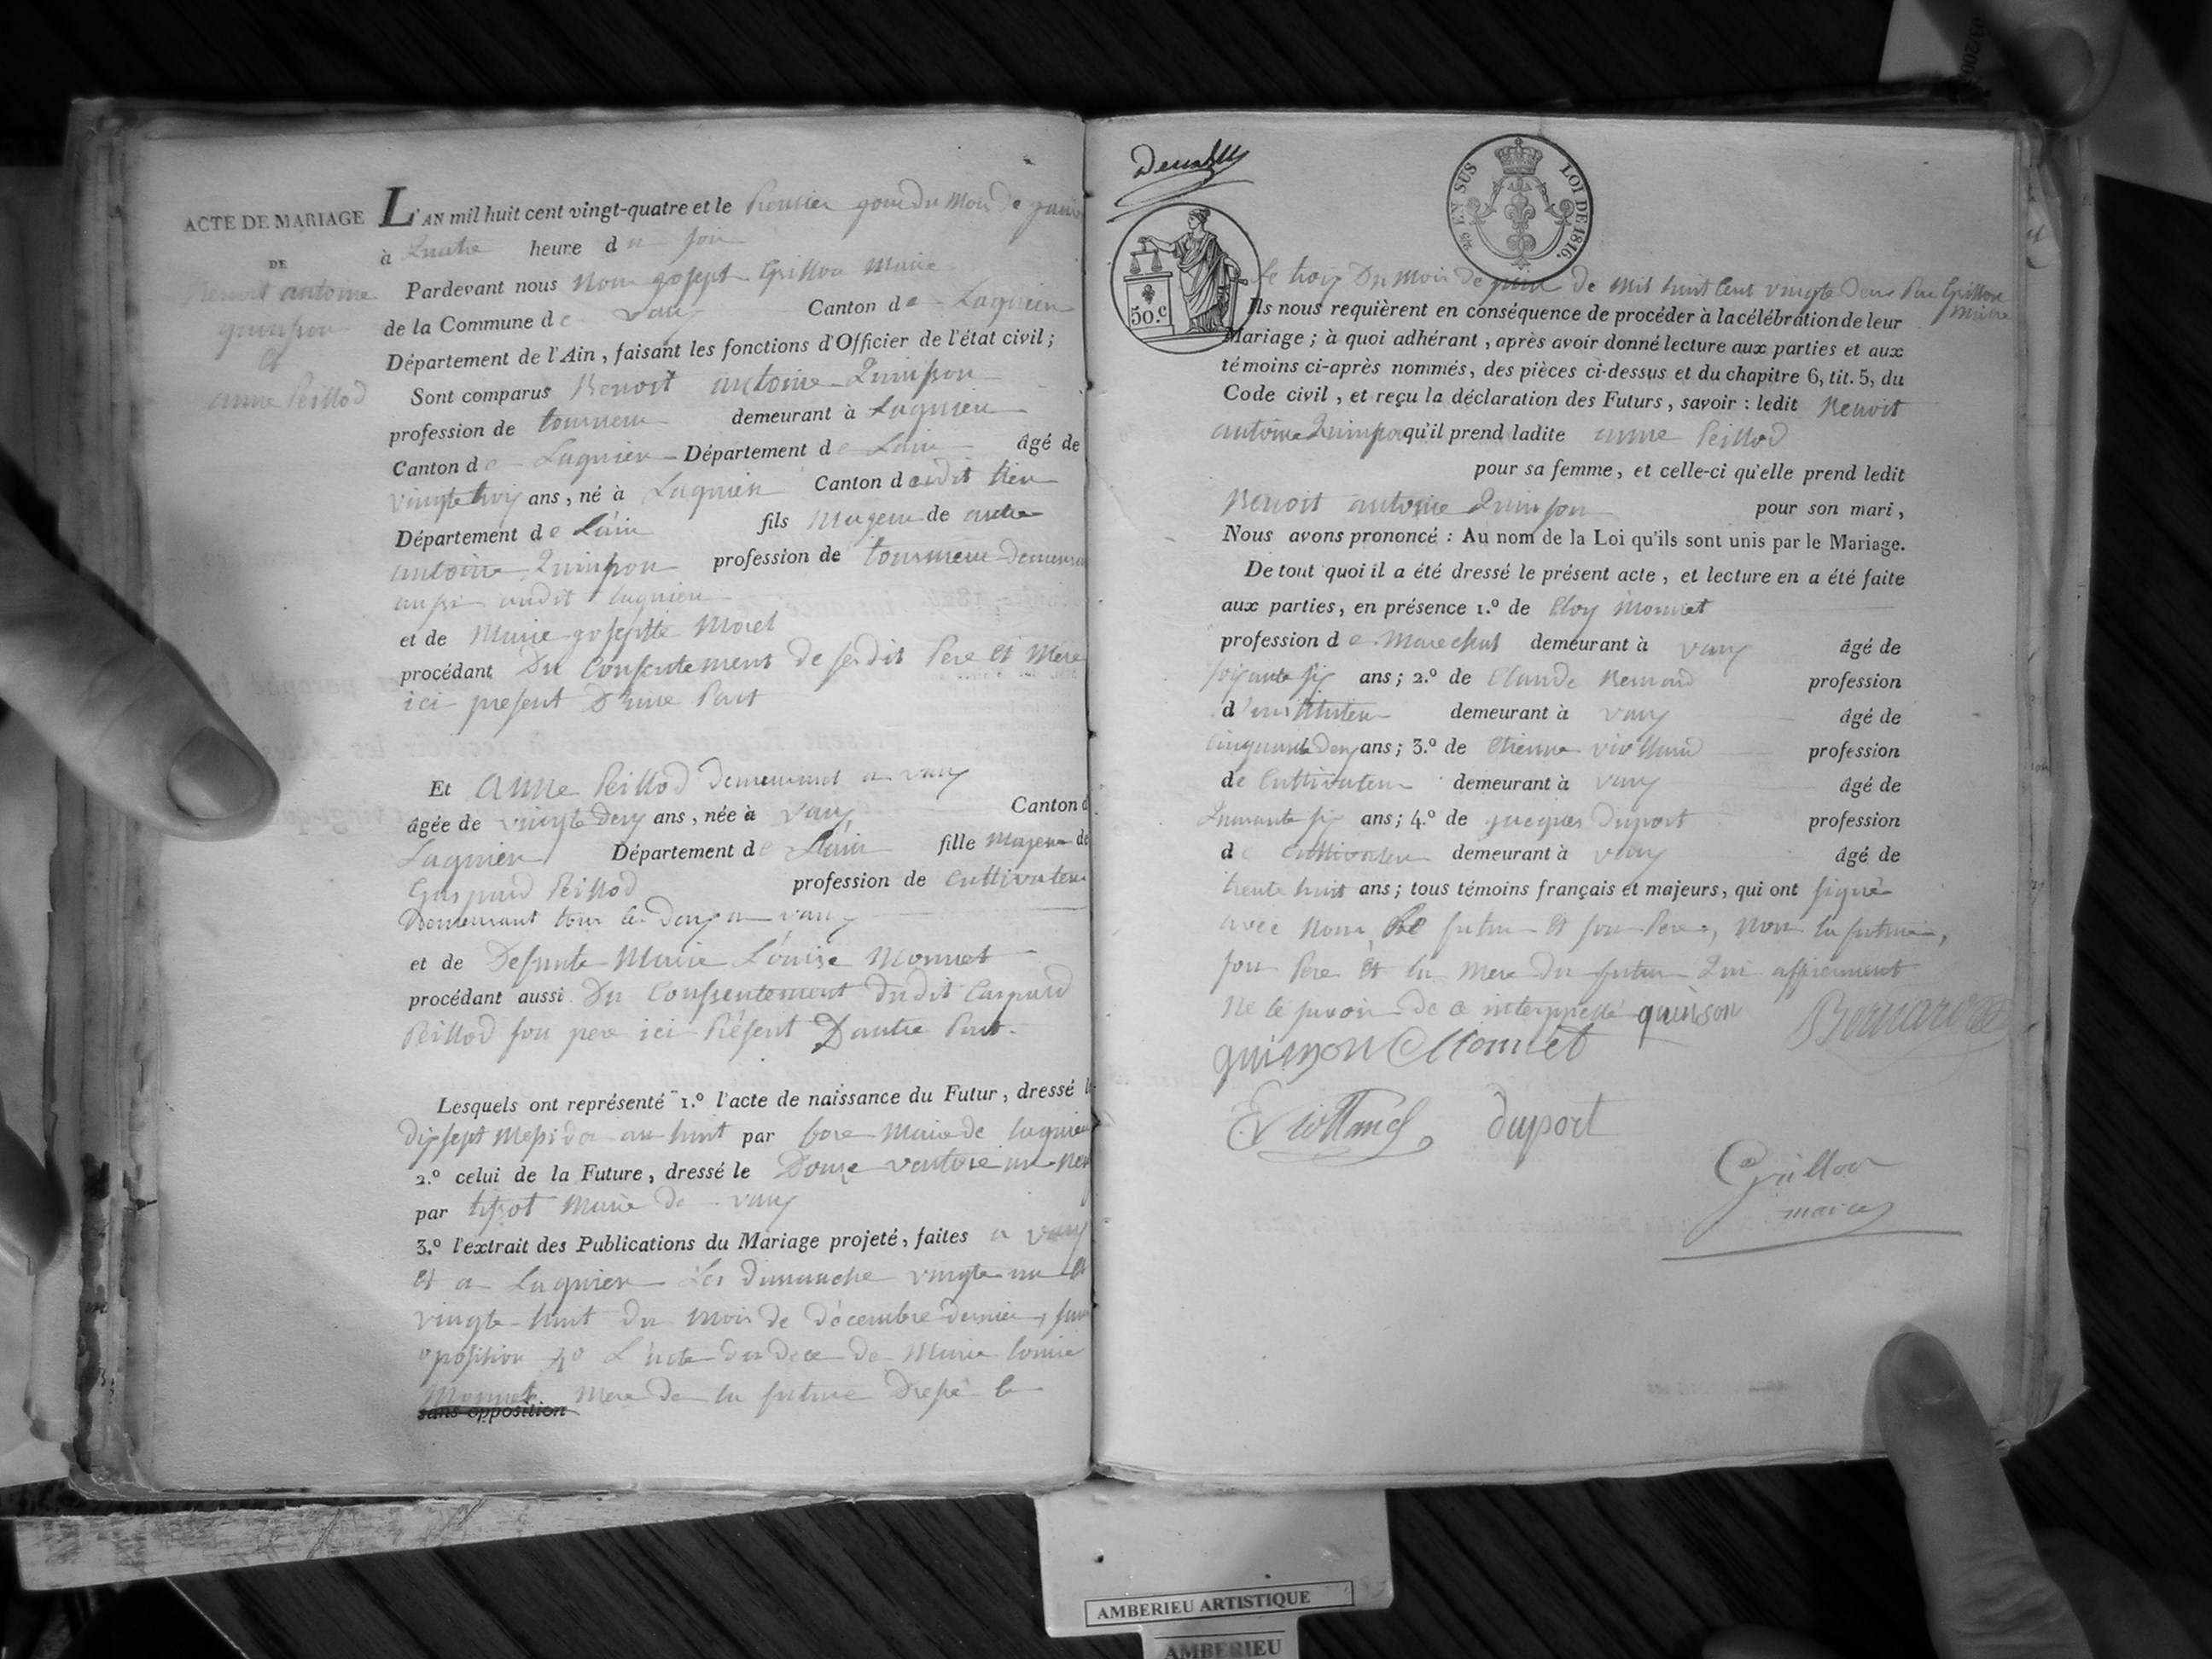 ACTE DE MARIAGE
DE
Benoit antoine
quinson
Et
anne Peillod
L'AN mil huit cent vingt-quatre et le Premier jour du Mois de
à quatre heure du soir
Pardevant nous Nous joseph Grillon Maire
de la Commune de vaux Canton de Lagnieu
Département de l'Ain, faisant les fonctions d'Officier de l'état civil;
Sont comparus Benoit antoine Quinson
profession de tourneur demeurant à Lagnieu
Canton de Lagnieu Département de Lain âgé de
vingte trois ans, né à Lagnieu Canton dudit lieu
Département de Lain fils Mageur de autre
antoine Quinson profession de tourneur
aussi audit Lagnieu
et de Marie josephte Morel
procédant Du Consentement de sesdit Pere et Mere
ici present D'une Part
Et Anne Peillod demeurant a vaux
âgée de vingte deux ans, née à vaux Canton d
Lagnieu Département de Lain fille Majeure de
Gaspard Peillod profession de Cultivateur
Demeurant tous les deux a vaux
et de Defunte Marie Louise Monnet
procédant aussi Du Consentement dudit Gaspard
Peillod son pere ici Présent D'autre Part.
Lesquels ont représenté 1.º l'acte de naissance du Futur, dressé le
dixsept Messidor an huit par Maire de Lagnieu
2.º celui de la Future, dressé le Douze ventose an
par tissot Maire de vaux
3.º l'extrait des Publications du Mariage projeté, faites a vaux
et a Lagnieu Les dimanche vingte un et
vingte-huit du mois de décembre dernier,
oposition 4º L'acte du dece de Marie Louise
Monnet Mere de la future Dressé le
sans opposition
50.C
EN SUS LOI DE 1816.
le trois Du Mois de juin de Mil huit Cent vingte deux Par Grillon
Maire
Ils nous requièrent en conséquence de procéder à la célébration de leur
Mariage; à quoi adhérant, après avoir donné lecture aux parties et aux
témoins ci-après nommés, des pièces ci-dessus et du chapitre 6, tit. 5, du
Code civil, et reçu la déclaration des Futurs, savoir: ledit Benoit
antoine Quinson qu'il prend ladite anne Peillod
pour sa femme, et celle-ci qu'elle prend ledit
Benoit antoine Quinson pour son mari,
Nous avons prononcé: Au nom de la Loi qu'ils sont unis par le Mariage.
De tout quoi il a été dressé le présent acte, et lecture en a été faite
aux parties, en présence 1.º de Eloy Monnet
profession de Marechal demeurant à vaux âgé de
soixante six ans; 2.º de Claude Bernard profession
d'instituteur demeurant à vaux âgé de
cinquante deux ans; 3.º de Etienne violland profession
de Cultivateur demeurant à vaux âgé de
quarante six ans; 4.º de jacques Duport profession
de Cultivateur demeurant à vaux âgé de
trente huit ans; tous témoins français et majeurs, qui ont signé
avec Nous, Le futur Et son Pere, Non la future,
son Pere Et la Mere du futur qui affirement
Ne le savoir de ce interppellé quinson
Bernard
quinson E Monnet
E Violland duport
Grillon
maire
AMBERIEU ARTISTIQUE
AMBERIEU